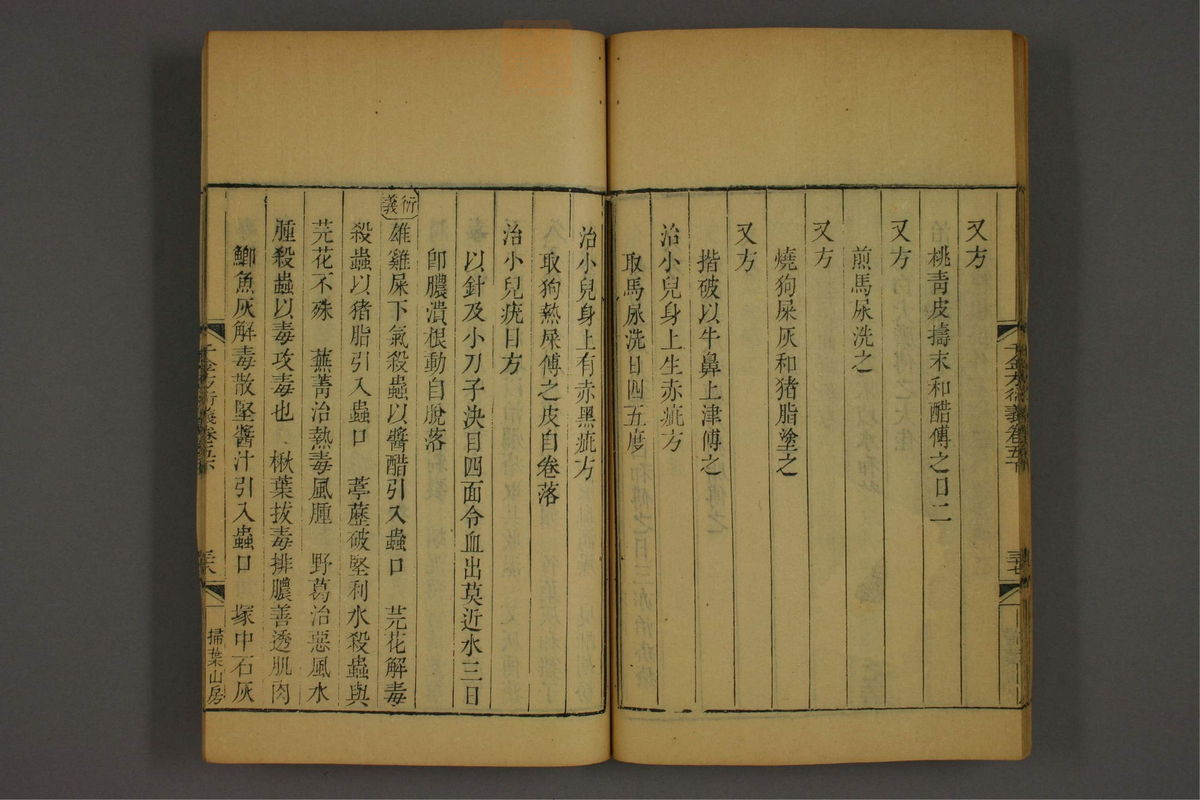 又方
桃靑皮擣末和醋傅之日二
又方
煎馬尿洗之
又方
燒狗屎灰和猪脂塗之
又方
揩破以牛鼻上津傅之
治小兒身上生赤疵方
取馬尿洗日四五度
治小兒身上有赤黑疵方
取狗熱屎傅之皮自卷落
治小兒疣目方
以針及小刀子決目四面令血出莫近水三日
卽膿潰根動自脫落
衍義
雄雞屎下氣殺蟲以醬醋引入蟲口　芫花解毒
殺蟲以猪脂引入蟲口　葶藶破堅利水殺蟲與
芫花不殊　蕪菁治熱毒風腫　野葛治惡風水
腫殺蟲以毒攻毒也　楸葉拔毒排膿善透肌肉
鯽魚灰解毒散堅醬汁引入蟲口　塚中石灰
千金方衍義卷五下
掃葉山房